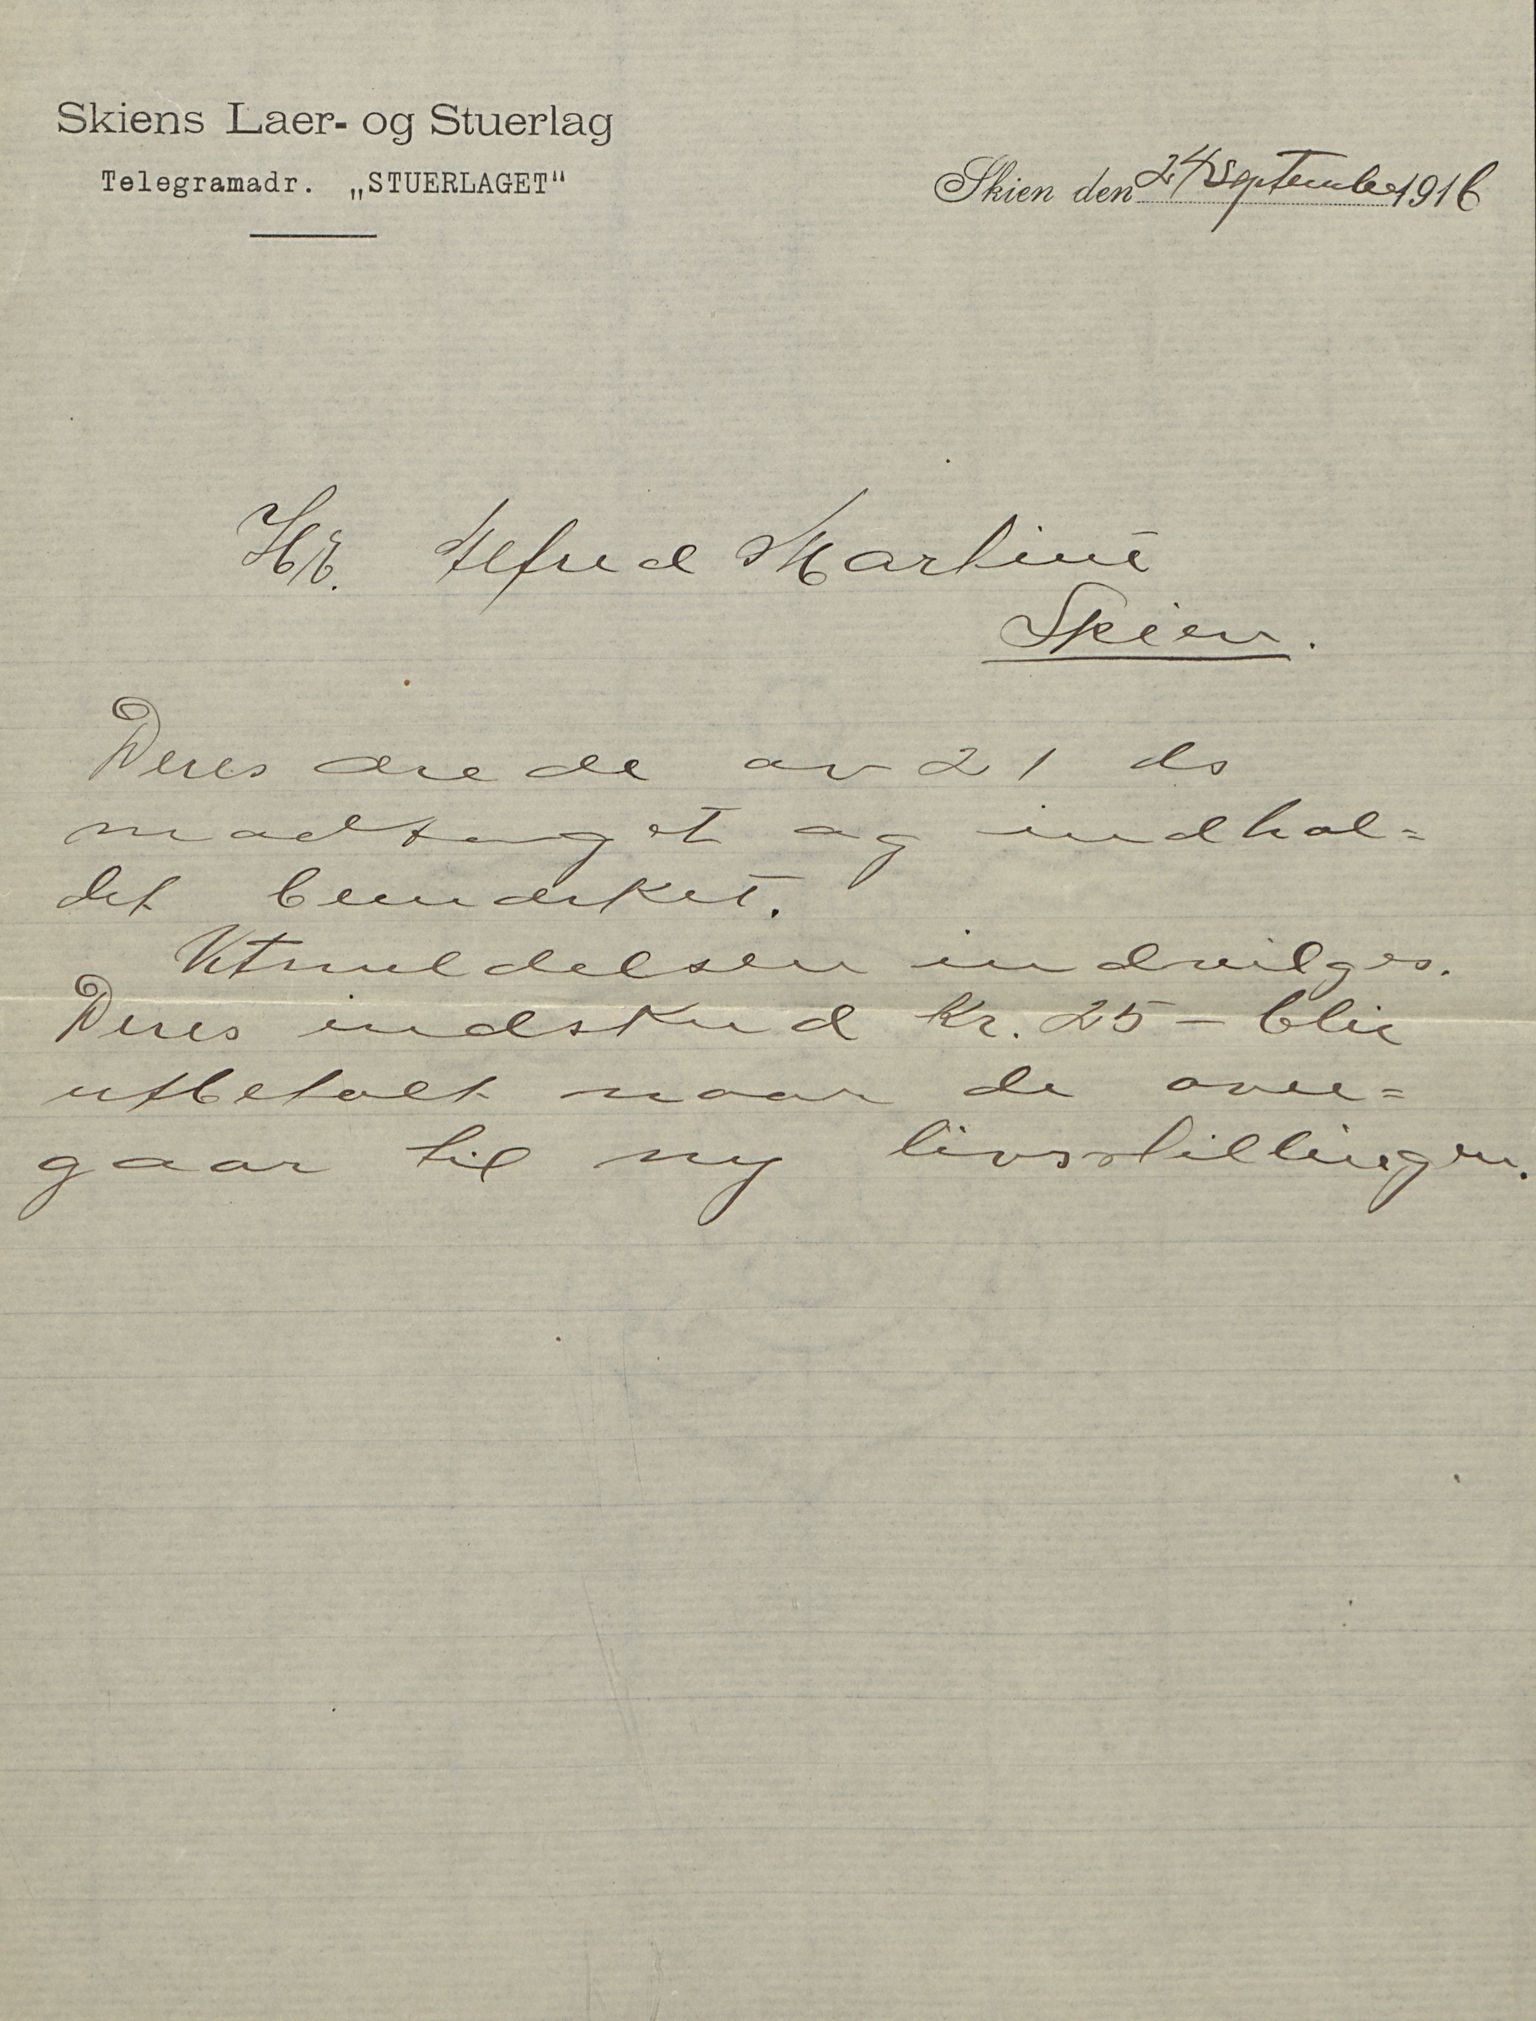 Skiens Laer- og Stuerlag
Telegramadr. „STUERLAGET"
Skien den 24 September 1916
Hr. Alfred Martine
Skien.
Deres ærede av 21 ds
modtaget og indhol=
det bemærket.
Utmeldelsen indvilges.
Deres indskud Kr. 25 - blir
utbetalt naar de over=
gaar til ny livsstillingen.